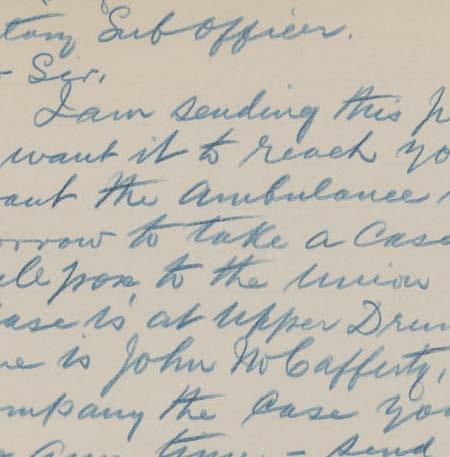 tary Sub Officer.
Sir,
I am sending this p
want it to reach yo
ant the Ambulance
orrow to take a Case
pox to the Union
ase is at Upper Drum
e is John McCafferty,
ompany the Case you
time - send